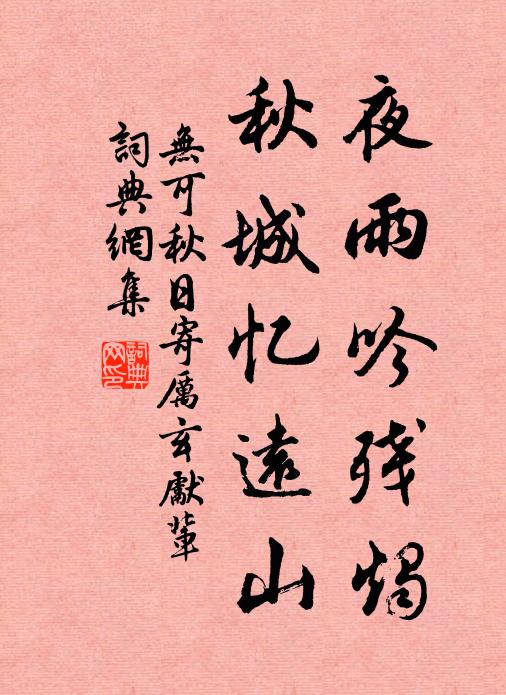 夜雨吟残烛
秋城忆遠山
無可秋日寄厲玄獻輩
詞典網集
詞典网印